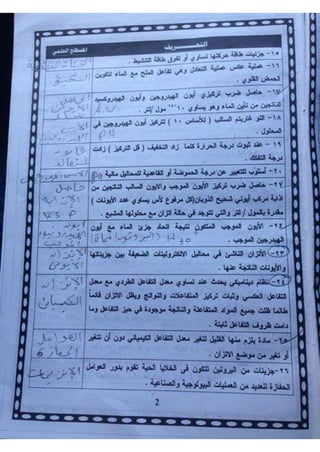 التعريف
المصطلح العلمي
١٥- جزيئات طاقة حركتها تساوي أو تفوق طاقة التنشيط .
الجزيئات المنشطة
١٦- عملية عكس عملية التعادل وهي تفاعل الملح مع الماء لتكوين
الحمض القلوي .
التميؤ
١٧- حاصل ضرب تركيزي أيون الهيدروجين وأيون الهيدروكسيد
الناتجين من تأين الماء وهو يساوي ١٠-١٤ مول /لتر .
١٨- اللو غاريتم السالب ( للأساس ١٠ ) لتركيز أيون الهيدروجين في
المحلول .
PH
١٩- عند ثبوت درجة الحرارة كلما زاد التخفيف ( قل التركيز ) زادت
درجة التفكك .
قانون
استفالد
٢٠- أسلوب للتعبير عن درجة الحموضة أو القاعدية للمحاليل مائية
٢١- حاصل ضرب تركيز الأيون الموجب والايون السالب الناتجين من
إذابة مركب أيوني شحيح الذوبان(كل مرفوع لأس يساوي عدد الأيونات )
مقدرة بالمول / لتر والتي تتوجد في حالة اتزان مع محلولها المشبع .
حاصل
الإذابة
KSP
٢٢- الأيون الموجب المتكون نتيجة اتحاد جزئ الماء مع أيون
الهيدروجين الموجب .
٢٣- الأتزان الناشئ في محاليل الالكتروليتات الضعيفة بين جزيئاتها
والأيونات الناتجة عنها .
الاتزان
الأيوني
٢٤- نظام ديناميكي يحدث عند تساوي معدل التفاعل الطردي مع معدل
التفاعل العكسي وثبات تركيز المتفاعلات والنواتج ويظل الاتزان قائماً
طالما ظلت جميع المواد المتفاعلة والناتجة موجودة في حيز التفاعل وما
دامت ظروف التفاعل ثابتة .
الاتزان
الكيميائي
٢٥- مادة يلزم منها القليل لتغير معدل التفاعل الكيميائي دون أن تتغير
أو تغير من موضع الاتزان .
العوامل
الحفازة
٢٦- جزيئات من البروتين تتكون في الخلايا الحية تقوم بدور العوامل
الحفازة للعديد من العمليات البيولوجية والصناعية .
الإنزيمات
2